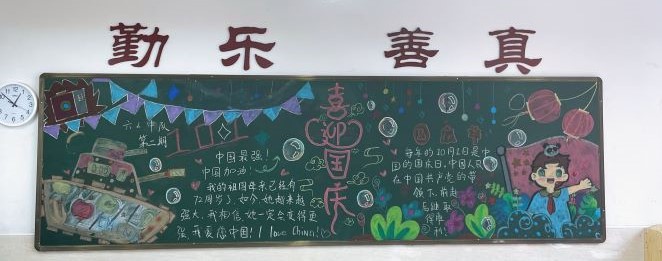 勤 乐 善 真
六2中队
第二期
10.1
喜迎国庆
中国最强!
中国加油!
我的祖国母亲已经有
72周岁了,如今,她越来越
强大,我相信她一定会变得更
强,我爱您中国!I love China!
国庆节
每年的10月1日是中
国的国庆日,中国人民
在中国共产党的带
领下,前赴
后继取
得胜
利!